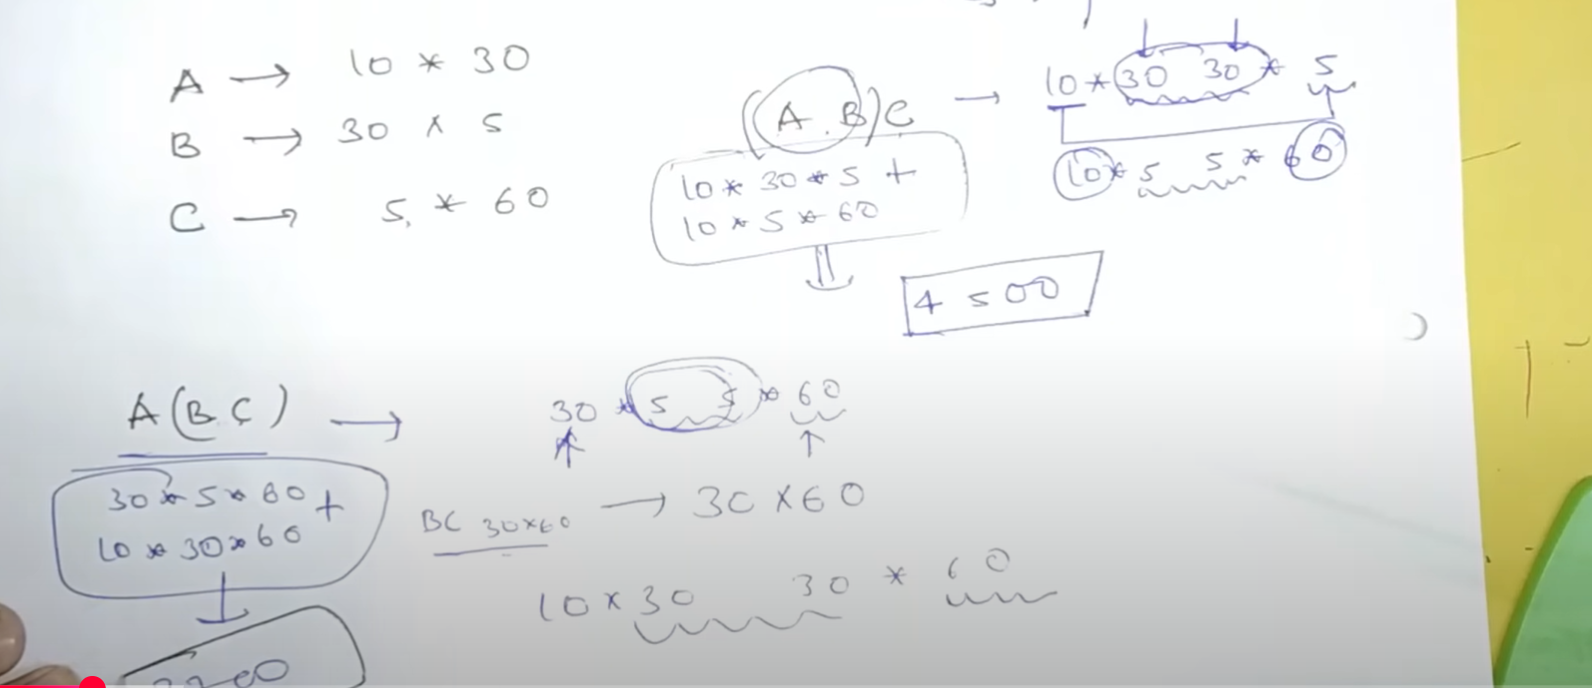 A → 10 * 30
B → 30 x 5
C → 5 * 60
(A.B)C → 10 * 30 30 * 5
10 * 5 5 * 60
10 * 30 * 5 +
10 * 5 * 60
4500
A(BC) → 30 * 5 5 * 60
30 * 5 * 60 +
10 * 30 * 60
BC 30x60 → 30 x 60
10 x 30 30 * 60